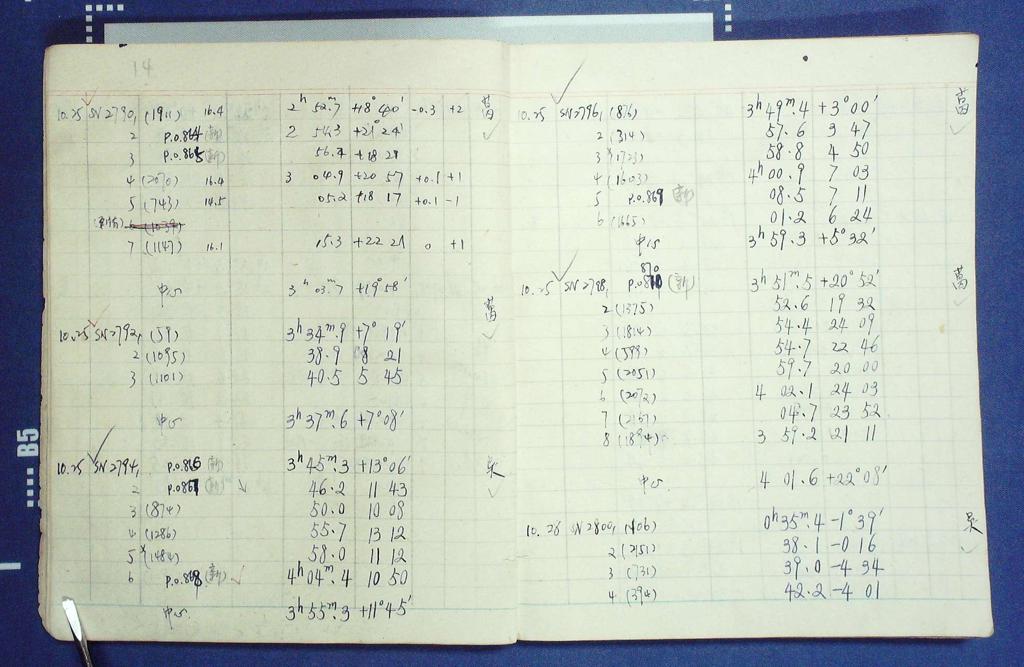 14
10.25 SN2790, (1911) 16.4 2ʰ 52.7 +18° 40' -0.3 +2 萬
2 P.O.864 (新) 2 54.3 +21° 24'
3 P.O.865 (新) 56.4 +18 21
4 (2070) 16.4 3 04.9 +20 57 +0.1 +1
5 (743) 14.5 05.2 +18 17 +0.1 -1
7 (1147) 16.1 15.3 +22 21 0 +1
中心 3ʰ 03.ᵐ7 +19° 58'
萬
10.25 SN2792, (59) 3ʰ 34ᵐ.9 +7° 19'
2 (1095) 38.9 8 21
3 (1101) 40.5 5 45
中心 3ʰ 37ᵐ.6 +7° 08'
10.25 SN2794, P.O.866 (新) 3ʰ 45ᵐ.3 +13° 06' 吴
2 P.O.867 (新) 46.2 11 43
3 (874) 50.0 10 08
4 (1286) 55.7 13 12
5 (1484) 58.0 11 12
6 P.O.868 (新) 4ʰ 04ᵐ.4 10 50
中心 3ʰ 55ᵐ.3 +11° 45'
10.25 SN2796, (876) 3ʰ 49ᵐ.4 +3° 00' 萬
2 (314) 57.6 3 47
3 (1723) 58.8 4 50
4 (1603) 4ʰ 00.9 7 03
5 P.O.869 (新) 08.5 7 11
6 (1665) 01.2 6 24
中心 3ʰ 59.3 +5° 32'
870
10.25 SN2798, P.O.870 (新) 3ʰ 51ᵐ.5 +20° 52' 萬
2 (1375) 52.6 19 32
3 (1814) 54.4 24 09
4 (599) 54.7 22 46
5 (2051) 59.7 20 00
6 (2072) 4 02.1 24 03
7 (2167) 04.7 23 52
8 (1894) 3 59.2 21 11
中心 4 01.6 +22° 08'
10.26 SN2800, (106) 0ʰ 35ᵐ.4 -1° 39' 吴
2 (2151) 38.1 -0 16
3 (731) 39.0 -4 34
4 (394) 42.2 -4 01
B5